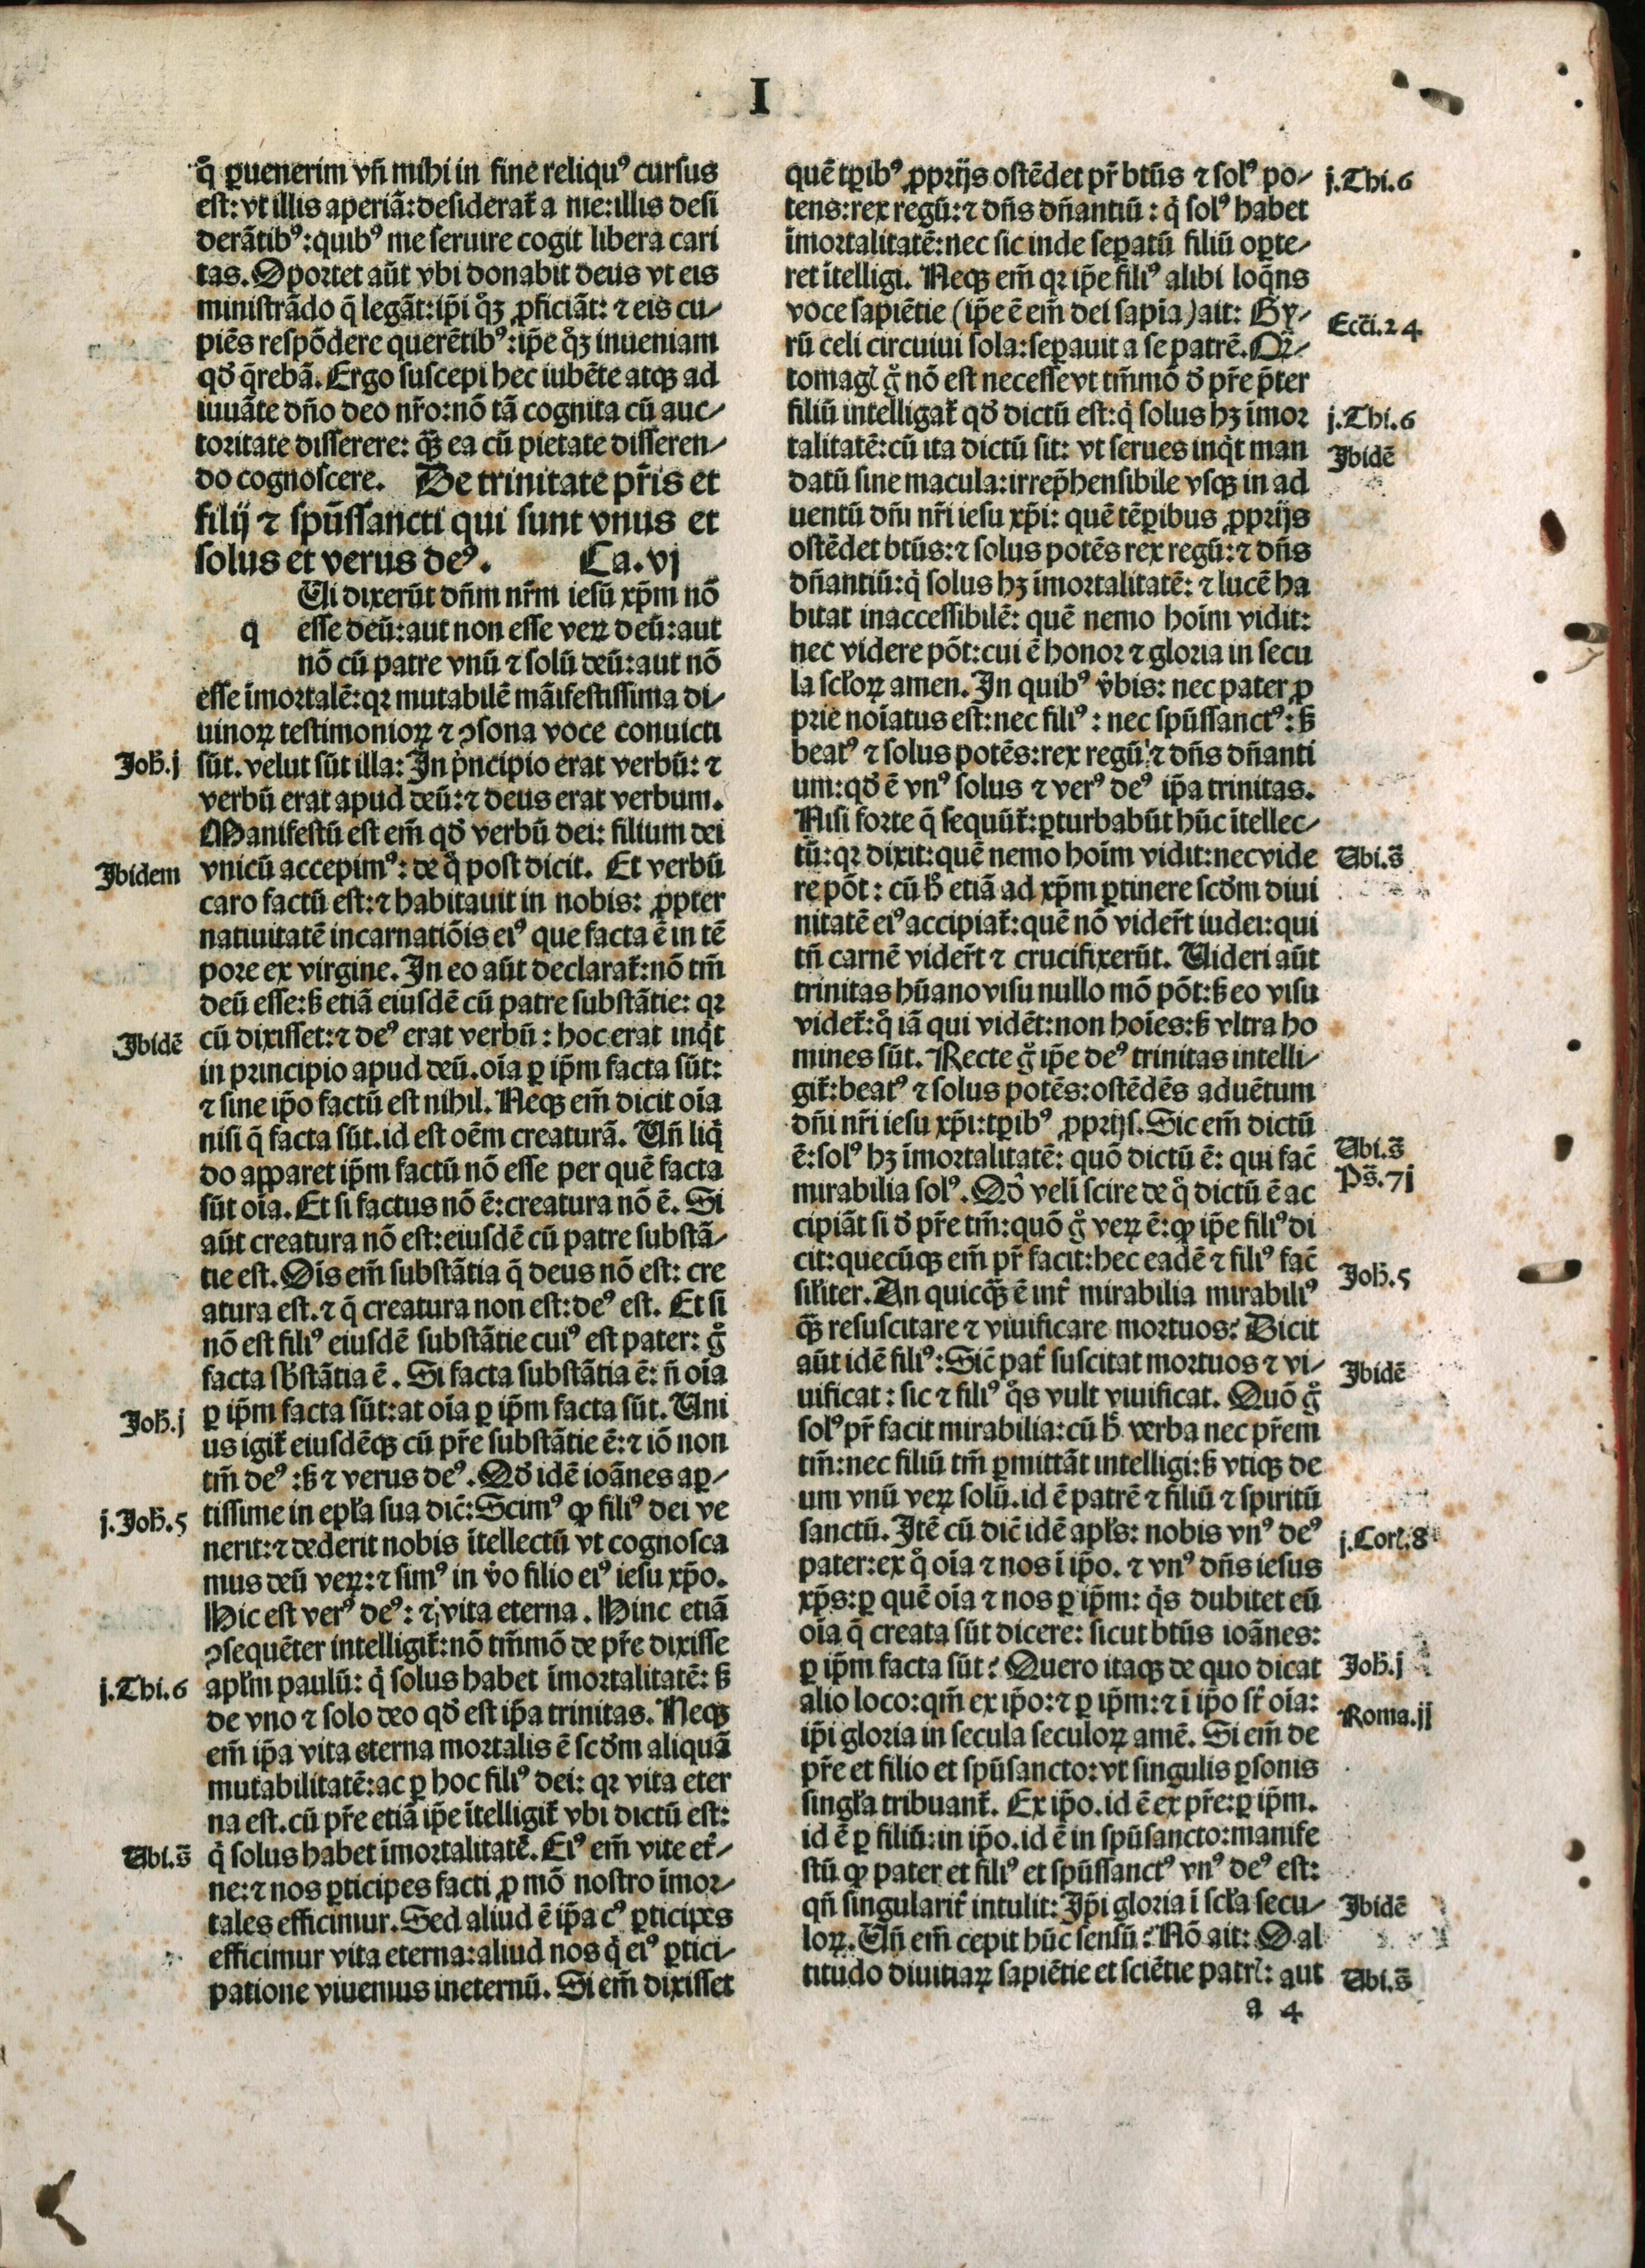 I
q̄ ꝑuenerim vn̄ mihi in fine reliquꝰ cursus
est: vt illis aperiā: desiderat᷑ a me: illis desi
derātibꝰ: quibꝰ me seruire cogit libera cari
tas. Oportet aūt vbi donabit deus vt eis
ministrādo q̄ legāt: ip̄i qͦꝫ ꝓficiāt: ⁊ eis cu/
piēs respōdere querētibꝰ: ip̄e qͦꝫ inueniam
qď q̄rebā. Ergo suscepi hec iubēte atqꝫ ad
iuuāte dn̄o deo nr̄o: nō tā cognita cū auc/
toritate disserere: qꝫ̄ ea cū pietate disseren/
do cognoscere. De trinitate pr̄is et
filij ⁊ spūssancti qui sunt vnus et
solus et verus deꝰ. Ca. vj
q
Ui dixerūt dn̄m nr̄m iesū xp̄m nō
esse deū: aut non esse veꝝ deū: aut
nō cū patre vnū ⁊ solū deū: aut nō
esse īmortalē: qꝛ mutabilē māifestissima di/
uinoꝝ testimonioꝝ ⁊ ꝯsona voce conuicti
Joh̄. j
sūt. velut sūt illa: In pͥncipio erat verbū: ⁊
verbū erat apud deū: ⁊ deus erat verbum.
Manifestū est em̄ qď verbū dei: filium dei
Ibidem
vnicū accepimꝰ: de qͦ post dicit. Et verbū
caro factū est: ⁊ habitauit in nobis: ꝓpter
natiuitatē incarnatiōis eiꝰ que facta ē in tē
pore ex virgine. In eo aūt declarat᷑: nō tm̄
deū esse: ẜ etiā eiusdē cū patre substātie: qꝛ
Ibidē
cū dixisset: ⁊ deꝰ erat verbū: hoc erat inqͥt
in principio apud deū. oīa ꝑ ip̄m facta sūt:
⁊ sine ip̄o factū est nihil. Neqꝫ em̄ dicit oīa
nisi q̄ facta sūt. id est oēm creaturā. Un̄ liqͥ
do apparet ip̄m factū nō esse per quē facta
sūt oīa. Et si factus nō ē: creatura nō ē. Si
aūt creatura nō est: eiusdē cū patre substā/
tie est. Oīs em̄ substātia q̄ deus nō est: cre
atura est. ⁊ q̄ creatura non est: deꝰ est. Et si
nō est filiꝰ eiusdē substātie cuiꝰ est pater: gͦ
facta sb̄stātia ē. Si facta substātia ē: n̄ oīa
Joh̄. j
ꝑ ip̄m facta sūt: at oīa ꝑ ip̄m facta sūt. Uni
us igit᷑ eiusdēqꝫ cū pr̄e substātie ē: ⁊ iō non
tm̄ deꝰ: ẜ ⁊ verus deꝰ. Qď idē ioānes aꝑ/
j. Joh̄. 5
tissime in epl̄a sua dic̄: Scimꝰ ꝙ filiꝰ dei ve
nerit: ⁊ dederit nobis ītellectū vt cognosca
mus deū veꝝ: ⁊ simꝰ in v̾o filio eiꝰ iesu xp̄o.
Hic est verꝰ deꝰ: ⁊ vita eterna. Hinc etiā
ꝯsequēter intelligit᷑: nō tm̄mō de pr̄e dixisse
j. Thi. 6
apl̄m paulū: qͥ solus habet īmortalitatē: ẜ
de vno ⁊ solo deo qď est ip̄a trinitas. Neqꝫ
em̄ ip̄a vita eterna mortalis ē scďm aliquā
mutabilitatē: ac ꝑ hoc filiꝰ dei: qꝛ vita eter
na est. cū pr̄e etiā ip̄e ītelligit᷑ vbi dictū est:
Ubi. s̄
qͥ solus habet īmortalitatē. Eiꝰ em̄ vite et̾/
ne: ⁊ nos ꝑticipes facti ꝓ mō nostro īmor/
tales efficimur. Sed aliud ē ip̄a cꝰ ꝑticipes
efficimur vita eterna: aliud nos qͥ eiꝰ ꝑtici/
patione viuemus ineternū. Si em̄ dixisset
quē tꝑibꝰ ꝓprijs ostēdet pr̄ btūs ⁊ solꝰ po/
j. Thi. 6
tens: rex regū: ⁊ dn̄s dn̄antiū: qͥ solꝰ habet
īmortalitatē: nec sic inde seꝑatū filiū oꝑte/
ret ītelligi. Neqꝫ em̄ qꝛ ip̄e filiꝰ alibi loq̄ns
voce sapiētie (ip̄e ē em̄ dei sapīa) ait: Gy/
Ecc̄i. 24
rū celi circuiui sola: seꝑauit a se patrē. Q̄ꝛ/
tomagꝭ gͦ nō est necesse vt tm̄mō ď pr̄e p̄ter
filiū intelligat᷑ qď dictū est: qͥ solus hꝫ īmor
j. Thi. 6
talitatē: cū ita dictū sit: vt serues inqͥt man
Ibidē
datū sine macula: irrep̄hensibile vsqꝫ in ad
uentū dn̄i nr̄i iesu xp̄i: quē tēꝑibus ꝓprijs
ostēdet btūs: ⁊ solus potēs rex regū: ⁊ dn̄s
dn̄antiū: qͥ solus hꝫ īmortalitatē: ⁊ lucē ha
bitat inaccessibilē: quē nemo hoīm vidit:
nec videre pōt: cui ē honor ⁊ gloria in secu
la scl̄oꝝ amen. In quibꝰ v̾bis: nec pater ꝓ
prie noīatus est: nec filiꝰ: nec spūssanctꝰ: ẜ
beatꝰ ⁊ solus potēs: rex regū ⁊ dn̄s dn̄anti
um: qď ē vnꝰ solus ⁊ verꝰ deꝰ ip̄a trinitas.
Nisi forte q̄ sequūt᷑: ꝑturbabūt hūc ītellec/
tū: qꝛ dixit: quē nemo hoīm vidit: nec vide
Ubi. s̄
re pōt: cū h̄ etiā ad xp̄m ꝑtinere scďm diui
nitatē eiꝰ accipiat᷑: quē nō vidert̄ iudei: qui
tn̄ carnē vidert̄ ⁊ crucifixerūt. Uideri aūt
trinitas hūano visu nullo mō pōt: ẜ eo visu
videt᷑: qͦ iā qui vidēt: non hoīes: ẜ vltra ho
mines sūt. Recte gͦ ip̄e deꝰ trinitas intelli/
git᷑: beatꝰ ⁊ solus potēs: ostēdēs aduētum
dn̄i nr̄i iesu xp̄i: tꝑibꝰ ꝓprijs. Sic em̄ dictū
ē: solꝰ hꝫ īmortalitatē: quō dictū ē: qui fac̄
Ubi. s̄
mirabilia solꝰ. Qď veli scire de qͦ dictū ē ac
Ps̄. 7j
cipiāt si ď pr̄e tm̄: quō gͦ veꝝ ē: ꝙ ip̄e filiꝰ di
cit: quecūqꝫ em̄ pr̄ facit: hec eadē ⁊ filiꝰ fac̄
Joh̄. 5
sil̄iter. An quicqꝫ̄ ē int̾ mirabilia mirabiliꝰ
qꝫ̄ resuscitare ⁊ viuificare mortuos? Dicit
aūt idē filiꝰ: Sic̄ pat̾ suscitat mortuos ⁊ vi/
Ibidē
uificat: sic ⁊ filiꝰ qͦs vult viuificat. Quō gͦ
solꝰ pr̄ facit mirabilia: cū h̄ verba nec pr̄em
tm̄: nec filiū tm̄ ꝑmittāt intelligi: ẜ vtiqꝫ de
um vnū veꝝ solū. id ē patrē ⁊ filiū ⁊ spiritū
sanctū. Itē cū dic̄ idē apl̄s: nobis vnꝰ deꝰ
j. Corī. 8
pater: ex qͦ oīa ⁊ nos ī ip̄o. ⁊ vnꝰ dn̄s iesus
xp̄s: ꝑ quē oīa ⁊ nos ꝑ ip̄m: qͥs dubitet eū
oīa q̄ creata sūt dicere: sicut btūs ioānes:
ꝑ ip̄m facta sūt? Quero itaqꝫ de quo dicat
Joh̄. j
alio loco: qm̄ ex ip̄o: ⁊ ꝑ ip̄m: ⁊ ī ip̄o st̄ oīa:
Roma. jj
ip̄i gloria in secula seculoꝝ amē. Si em̄ de
pr̄e et filio et spūsancto: vt singulis ꝑsonis
singl̄a tribuant᷑. Ex ip̄o. id ē ex pr̄e: ꝑ ip̄m.
id ē ꝑ filiū: in ip̄o. id ē in spūsancto: manife
stū ꝙ pater et filiꝰ et spūssanctꝰ vnꝰ deꝰ est:
qn̄ singularit̾ intulit: Ip̄i gloria ī scl̄a secu/
Ibidē
loꝝ. Un̄ em̄ cepit hūc sensū? Nō ait: O al
titudo diuitiaꝝ sapiētie et sciētie patrꝭ: aut
Ubi. s̄
a 4